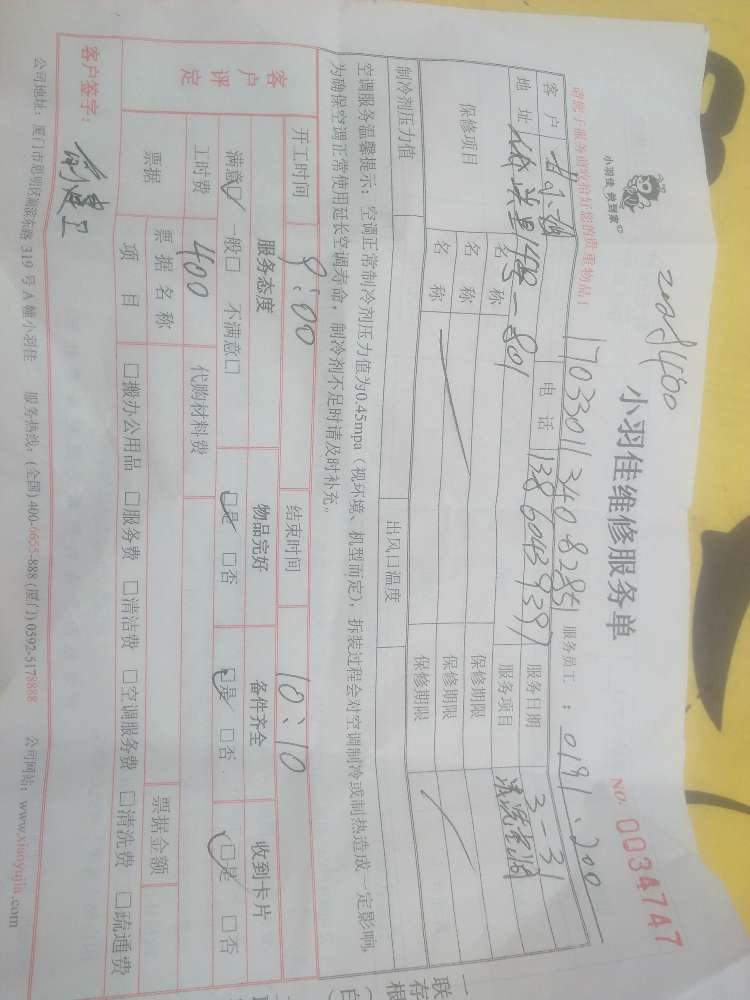 小羽佳 快到家
小羽佳维修服务单
NO. 0034747
请您于服务前收拾好您的贵重物品！
服务员工：0191.200
客户
电话 13860439397
服务日期 3-31
地址
服务项目
保修项目
名称
保修期限
名称
保修期限
名称
保修期限
制冷剂压力值
出风口温度
空调服务温馨提示：空调正常制冷剂压力值为0.45mpa（视环境、机型而定），拆装过程会对空调制冷或制热造成一定影响，
为确保空调正常使用延长空调寿命，制冷剂不足时请及时补充。
开工时间 9:00
结束时间 10:10
客户评定
服务态度
物品完好
备件齐全
收到卡片
满意☑ 一般□ 不满意□
☑是 □否
☑是 □否
☑是 □否
工时费 400
代购材料费
票据
票据名称
票据金额
项目
□搬办公用品 □服务费 □清洁费 □空调服务费 □清洗费 □疏通费
客户签字：
公司地址：厦门市思明区湖滨东路 319 号 A 幢小羽佳 服务热线：(全国)400-1655-888 (厦门) 0592-5178888 公司网站：www.xiaoyujia.com
一联
存根